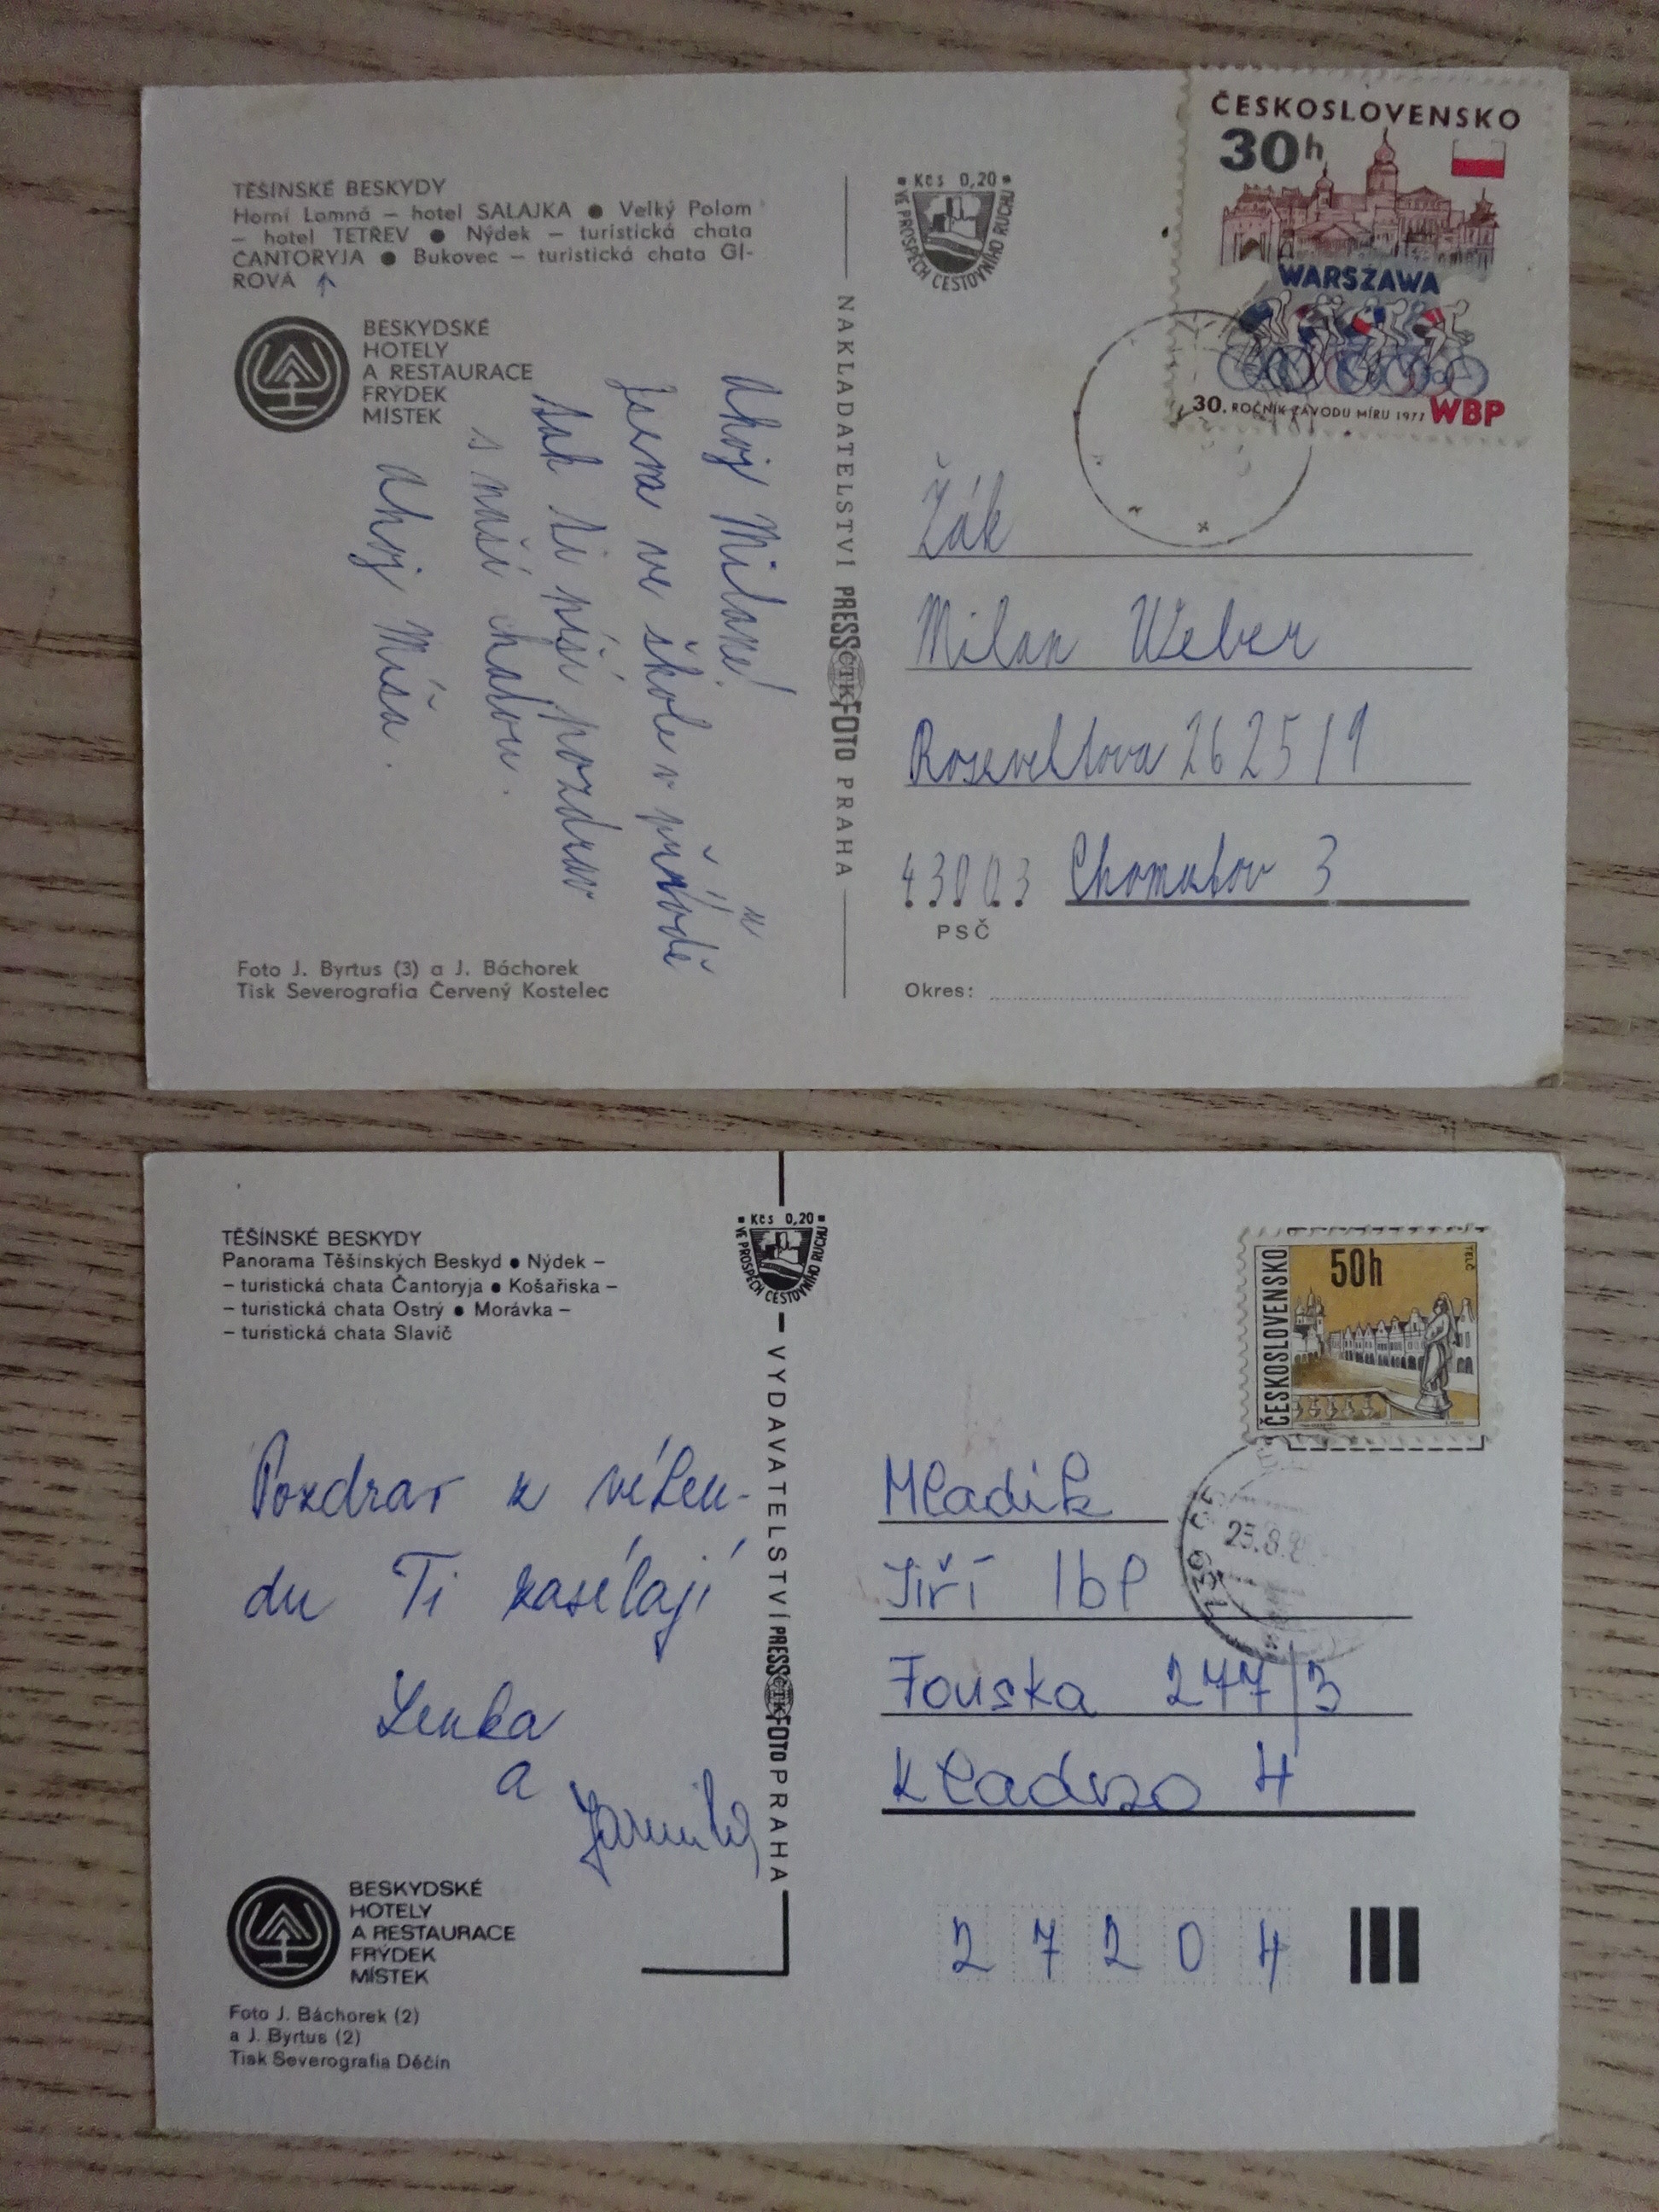 TĚŠÍNSKÉ BESKYDY
Horní Lomná – hotel SALAJKA ● Velký Polom
– hotel TETŘEV ● Nýdek – turistická chata
ČANTORYJA ● Bukovec – turistická chata GI-
ROVÁ
BESKYDSKÉ
HOTELY
A RESTAURACE
FRÝDEK
MÍSTEK
Ahoj Milane!
Jsem ve škole v přírodě
tak ti píši pozdrav
s naší chatou.
Ahoj Míša.
Foto J. Byrtus (3) a J. Báchorek
Tisk Severografia Červený Kostelec
NAKLADATELSTVÍ PRESSČTKFOTO PRAHA
Kčs 0,20
VE PROSPĚCH CESTOVNÍHO RUCHU
ČESKOSLOVENSKO
30h
WARSZAWA
30. ROČNÍK ZÁVODU MÍRU 1977 WBP
Žák
Milan Weber
Roseveltova 2625/9
43003 Chomutov 3
PSČ
Okres:
TĚŠÍNSKÉ BESKYDY
Panorama Těšínských Beskyd ● Nýdek –
– turistická chata Čantoryja ● Košařiska –
– turistická chata Ostrý ● Morávka –
– turistická chata Slavíč
Kčs 0,20
VE PROSPĚCH CESTOVNÍHO RUCHU
VYDAVATELSTVÍ PRESSČTKFOTO PRAHA
Pozdrav z víken-
du Ti zasílají
Lenka
a
Jarmila
BESKYDSKÉ
HOTELY
A RESTAURACE
FRÝDEK
MÍSTEK
Foto J. Báchorek (2)
a J. Byrtus (2)
Tisk Severografia Děčín
ČESKOSLOVENSKO
50h
TELČ
Mladík
Jiří Ibl
Fouska 277/3
Kladno 4
27204